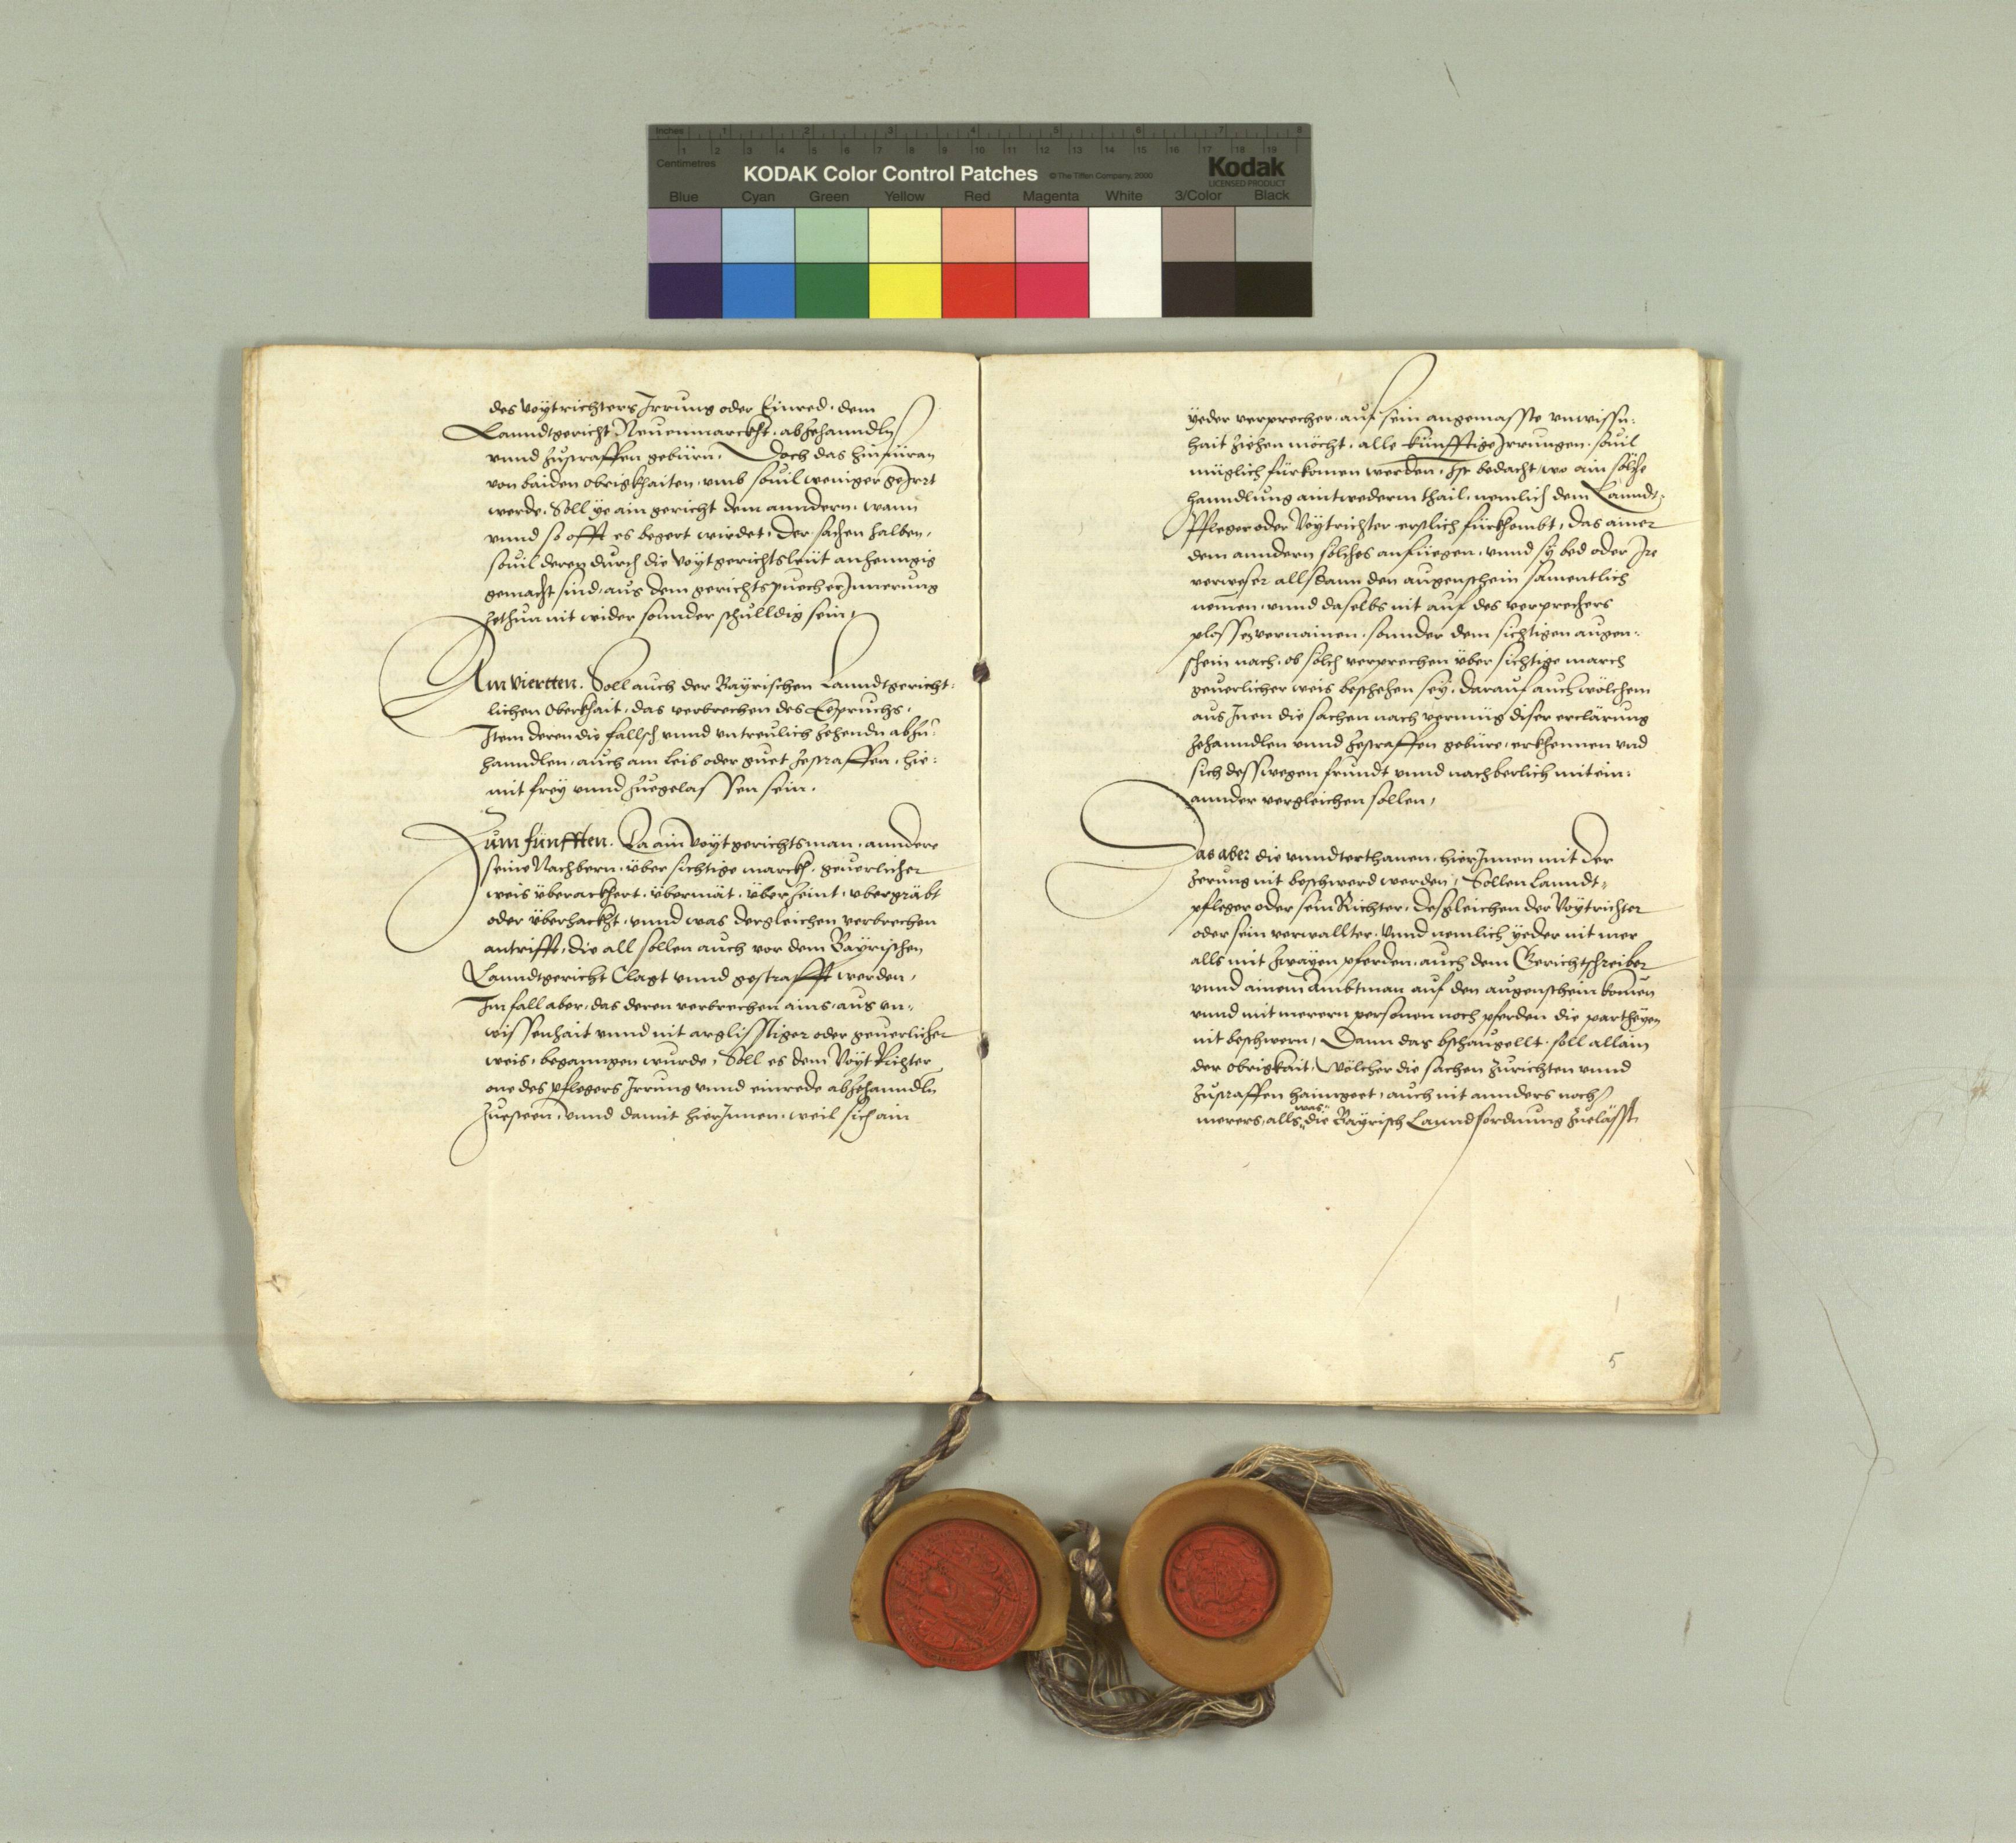 Inches 1 2 3 4 5 6 7 8
Centimetres 1 2 3 4 5 6 7 8 9 10 11 12 13 14 15 16 17 18 19
KODAK Color Control Patches © The Tiffen Company, 2000 Kodak
LICENSED PRODUCT
Blue Cyan Green Yellow Red Magenta White 3/Color Black
des Voÿtrichters Irrung oder Einred, dem
Lanndtgericht Neuenmarckht, abzehanndln
vnnd zustraffen gebürn. Doch das hinfüran
von baiden obrigkhaiten, vmb souil weniger geIrrt
werde, Soll ye ain gericht dem anndern, wann
vnnd so offt es begert wirdet, der sachen halben,
souil deren durch die Voÿtgerichtsleüt anhenngig
gemacht sind, aus dem gerichtspuech erInnerung
zethun nit wider sonnder schulldig sein,
Am viertten. Soll auch der Bayrischen Lanndtgericht-
lichen Oberkhait, das verbrechen des Eepruchs,
Item deren die fallsch vnnd vntreulich zehendn abzu-
hanndlen, auch am leib oder guet zestraffen, hie-
mit frey vnnd zuegelassen sein.
Zum fünfften. Da ain Voÿtgerichtsman, anndere
seine Nachbern, über sichtige marckh, geuerlicher
weis überackhert, übermät, überzeint, vbergräbt
oder überhackht, vnnd was dergleichen verbrechen
antrifft, die all sollen auch vor dem Bayrischen
Lanndtgericht Clagt vnnd gestrafft werden,
Im fall aber, das deren verbrechen ains, aus vn-
wissenhait vnnd nit arglisstiger oder geuerlicher
weis, beganngen wurde, Soll es dem Voÿt Richter
one des pflegers Irrung vnnd einrede abzehanndln
zuesteen, vnnd damit hierInnen, weil sich ain
yeder verprecher, auf sein angemasste vnwissn-
hait ziehen möcht, alle künfftige Irrungen, souil
müglich fürkomen werden, Ist bedacht, wo ain sölche
hanndlung aintwederm thail, nemlich dem Lanndt-
Pfleger oder Voÿtrichter erstlich fürkhombt, das ainer
dem anndern solches anfuegen, vnnd sÿ bed oder Ire
verweser allsdann den augenschein samentlich
nemen, vnnd daselbs nit auf des verprechers
plossez vernainen, sonnder dem sichtigen augen-
schein nach, ob solch verprechen über sichtige march
geuerlicher weis beschehen seÿ, darauf auch wölchem
aus Inen die sachen nach vermüg diser erclärung
zehanndlen vnnd zestraffen gebüre, erkhennen vnd
sich desswegen frundt vnnd nachberlich mit ein-
annder vergleichen sollen,
Das aber die vnndterthanen, hierInnen mit der
Zerung nit beschwerd werden, Sollen Lanndt-
pfleger oder sein Richter, desgleichen der Voÿtrichter
oder sein verwallter, vnnd nemlich yeder nit mer
alls mit zwayen pferden, auch dem Gerichtschreiber
vnnd ainem Ambtman auf den augenschein komen
vnnd mit merern personen noch pferden die partheyen
nit beschwern, Dann das bschaugellt, soll allain
der obrigkait, wölcher die sachen zurichten vnnd
zustraffen haimgeet, auch nit annders noch
merers, alls was die Bayrisch Lanndsordnung zuelässt.
5